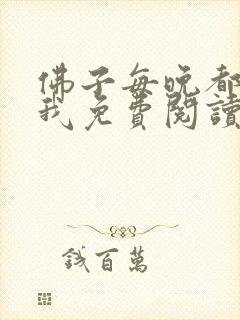 佛子每晚都
我免費閱讀
錢百萬